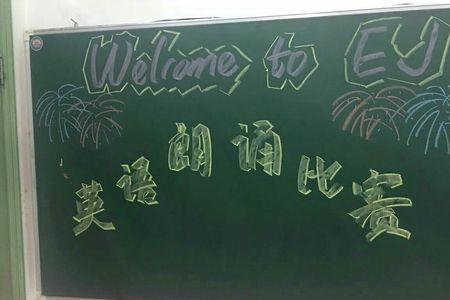 Welcome to EY
英语朗诵比赛